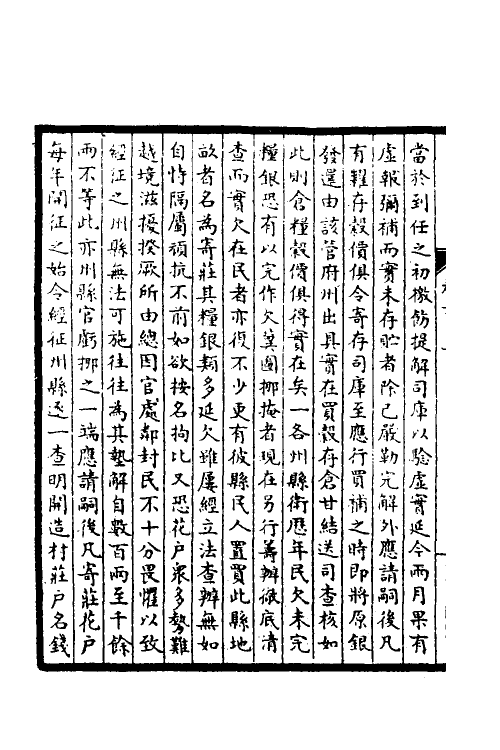 當於到任之初檄飭提解司庫以驗虛實延今兩月果有
虛報彌補而實未存貯者除已嚴勒完解外應請嗣後凡
有糶存穀價俱令寄存司庫至應行買補之時即將原銀
發還由該管府州出具實在買穀存倉甘結送司查核如
此則倉糧穀價俱得實在矣一各州縣衛歷年民欠未完
糧銀恐有以完作欠冀圖挪掩者現在另行籌辦徹底清
查而實欠在民者亦復不少更有彼縣民人置買此縣地
畝者名為寄莊其糧銀類多延欠雖屢經立法查辦無如
自恃隔屬頑抗不前如欲按名拘比又恐花戶眾多勢難
越境滋擾揆厥所由總因官處鄰封民不十分畏懼以致
經征之州縣無法可施往往為其墊解自數百兩至千餘
兩不等此亦州縣官虧挪之一端應請嗣後凡寄莊花戶
每年開征之始令經征州縣逐一查明開造村莊戶名錢